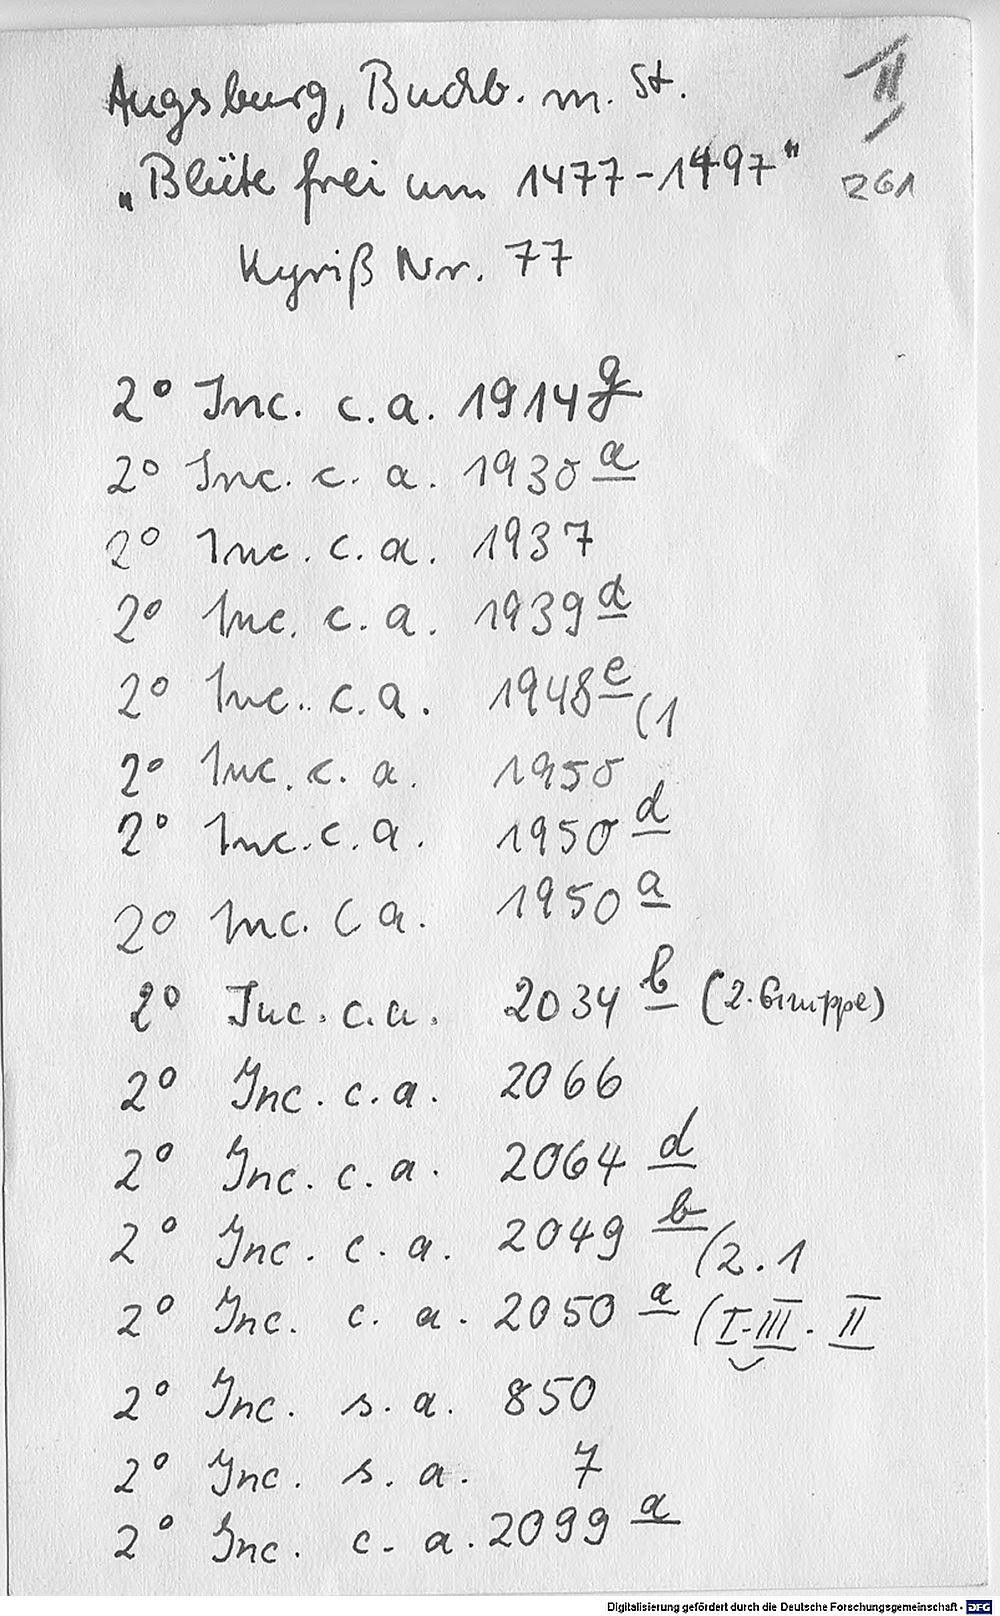 Augsburg, Buchb. m. St.
II
„Blüte frei um 1477-1497"
261
Kyriß Nr. 77
2° Inc. c.a. 1914 g
2° Inc. c. a. 1930 a
2° Inc. c.a. 1937
2° Inc. c.a. 1939 d
2° Inc. c.a. 1948 e (1
2° Inc. c. a. 1950
2° Inc. c. a. 1950 d
2° Inc. c a. 1950 a
2° Inc. c.a. 2034 b (2. Gruppe)
2° Inc. c.a. 2066
2° Inc. c.a. 2064 d
2° Inc. c. a. 2049 b (2. 1
2° Inc. c. a. 2050 a (I-III. II
2° Inc. s. a. 850
2° Inc. s. a. 7
2° Inc. c. a. 2099 a
Digitalisierung gefördert durch die Deutsche Forschungsgemeinschaft - DFG